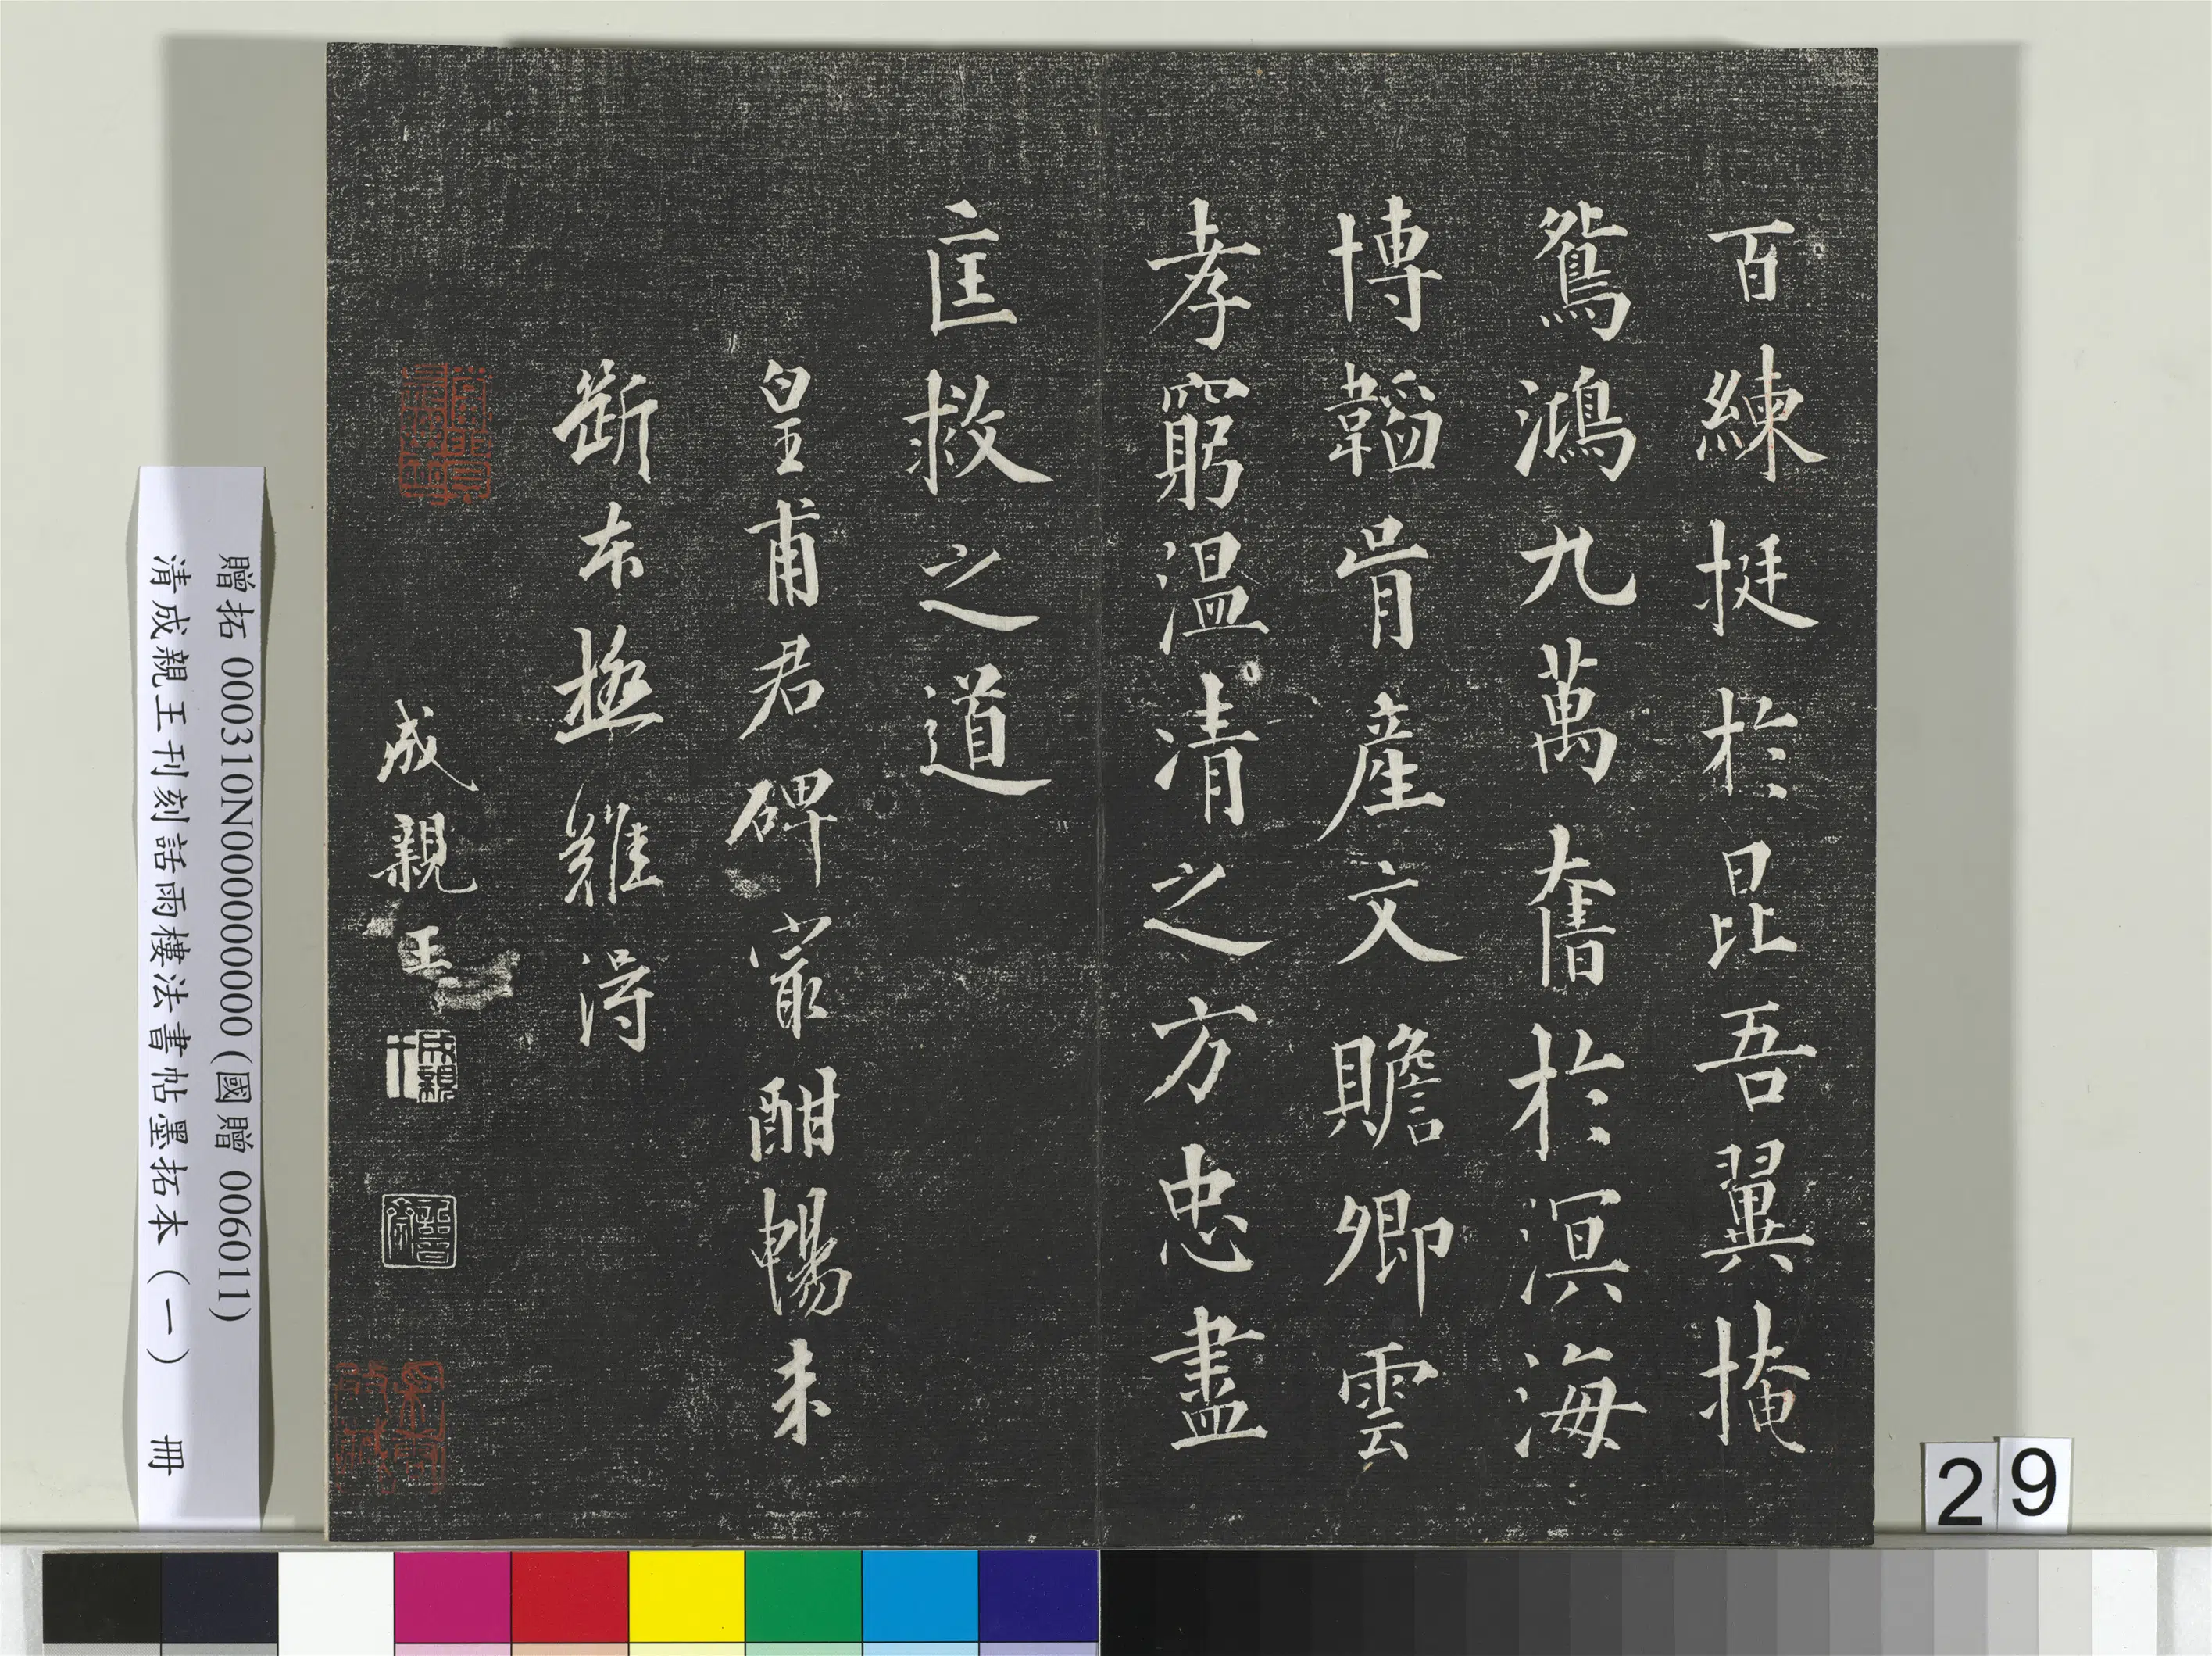 百練挺於昆吾翼掩
鴛鴻九萬奮於溟海
博韜胷產文贍卿雲
孝窮温凊之方忠盡
匡救之道
皇甫君碑嚴酣暢未
斷本極難得
成親王
贈拓 000310N000000000 (國贈 006011)
清成親王刊刻詒晉齋法書帖墨拓本 (一) 冊
29